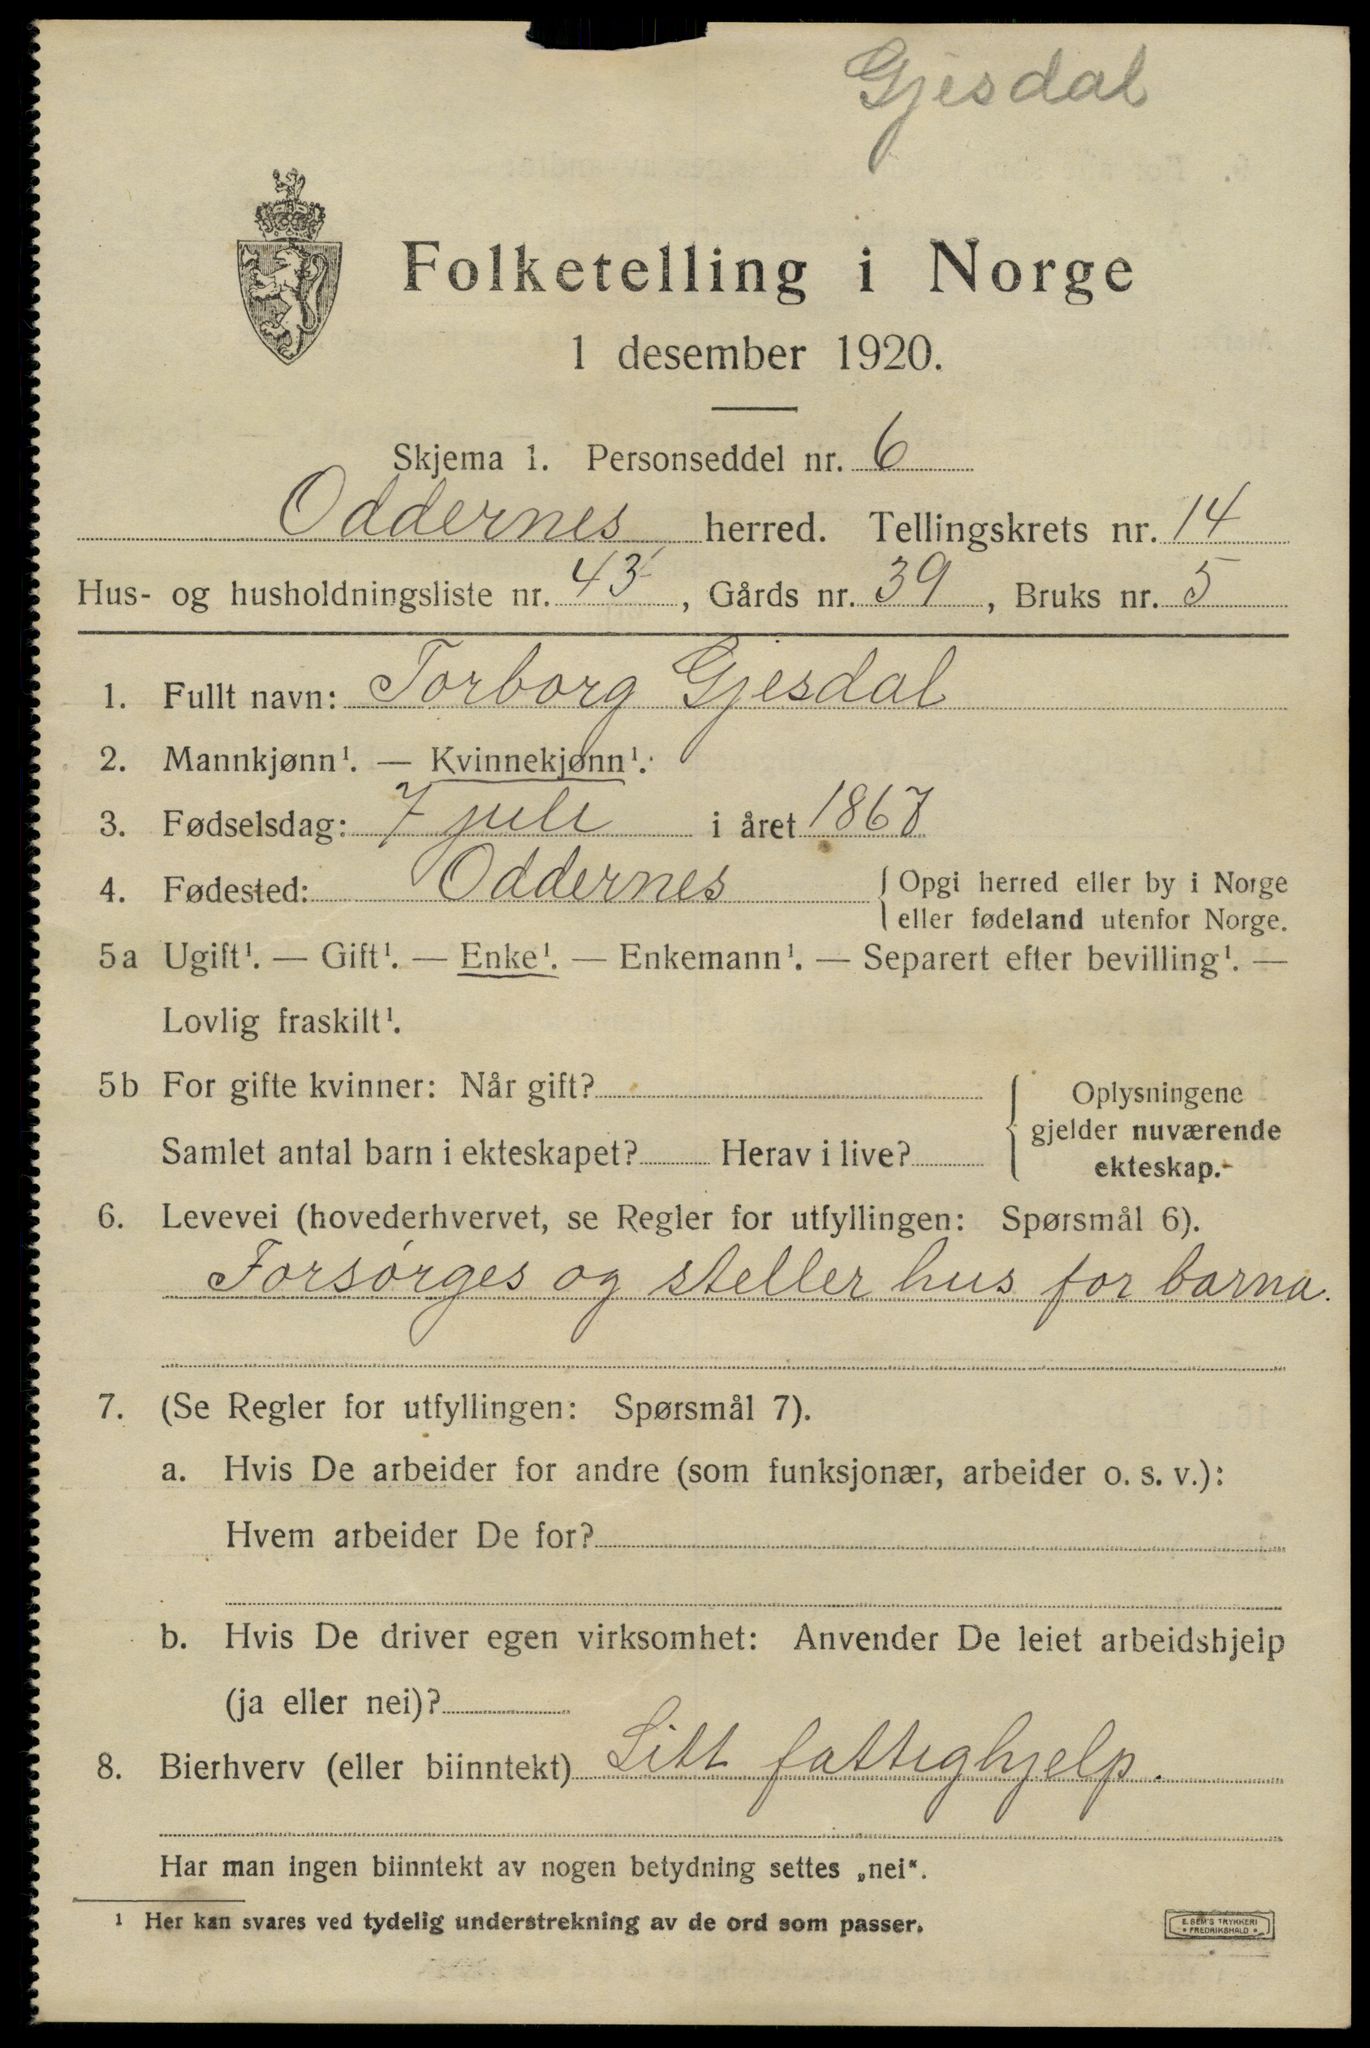 Gjesdal
Folketelling i Norge
1 desember 1920.
Skjema 1. Personseddel nr. 6
Oddernes herred. Tellingskrets nr. 14
Hus- og husholdningsliste nr. 43, Gårds nr. 39, Bruks nr. 5
1. Fullt navn: Torborg Gjesdal
2. Mannkjønn¹. — Kvinnekjønn¹.
3. Fødselsdag: 7 juli i året 1867
4. Fødested: Oddernes { Opgi herred eller by i Norge
eller fødeland utenfor Norge.
5a Ugift¹. — Gift¹. — Enke¹. — Enkemann¹. — Separert efter bevilling¹. —
Lovlig fraskilt¹.
5b For gifte kvinner: Når gift? { Oplysningene
gjelder nuværende
Samlet antal barn i ekteskapet? Herav i live? ekteskap.
6. Levevei (hovederhvervet, se Regler for utfyllingen: Spørsmål 6).
Forsørges og steller hus for barna.
7. (Se Regler for utfyllingen: Spørsmål 7).
a. Hvis De arbeider for andre (som funksjonær, arbeider o. s. v.):
Hvem arbeider De for?
b. Hvis De driver egen virksomhet: Anvender De leiet arbeidshjelp
(ja eller nei)?
8. Bierhverv (eller biinntekt) Litt fattighjelp.
Har man ingen biinntekt av nogen betydning settes „nei“.
¹ Her kan svares ved tydelig understrekning av de ord som passer.
E. SEM'S TRYKKERI
• FREDRIKSHALD •